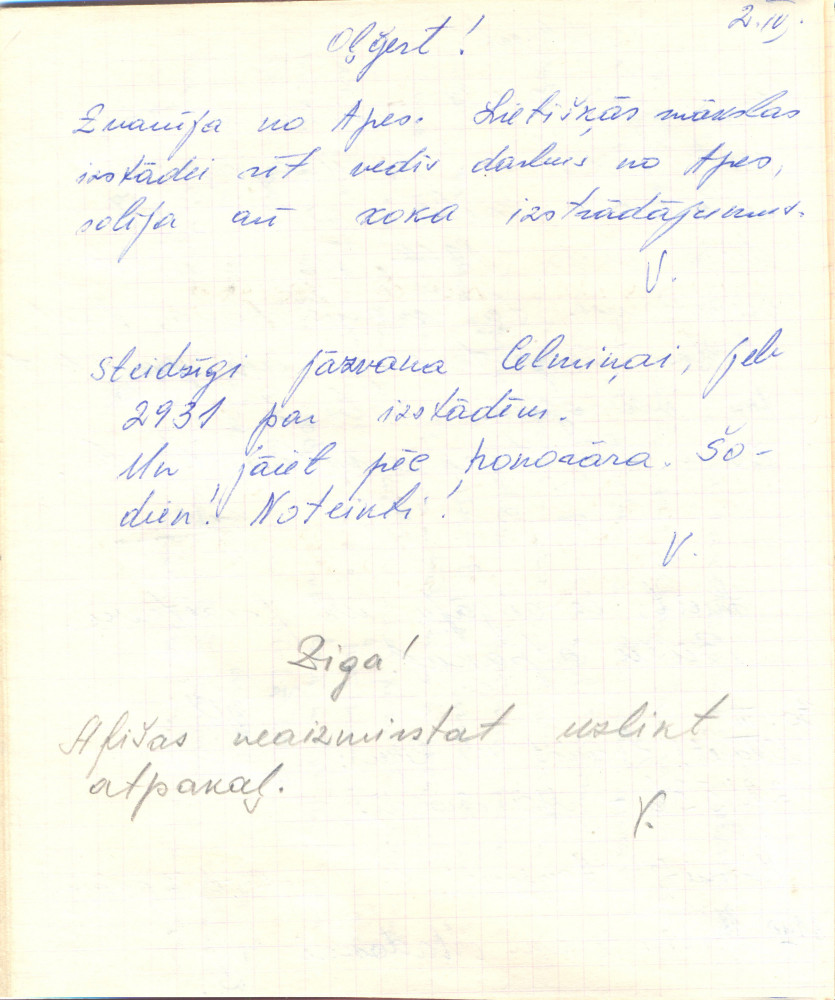 2.IV.
Oļģert!
Zvanīja no Apes. Lietišķās mākslas
izstādei rīt vedīs darbus no Apes,
solīja arī koka izstrādājumus.
V.
Steidzīgi jāzvana Celmiņai, jeb
2931 par izstādēm.
Un jāiet pēc honorāra. Šo-
dien! Noteikti!
V.
Ziga!
Afišas neaizmirstat uzlikt
atpakaļ.
V.